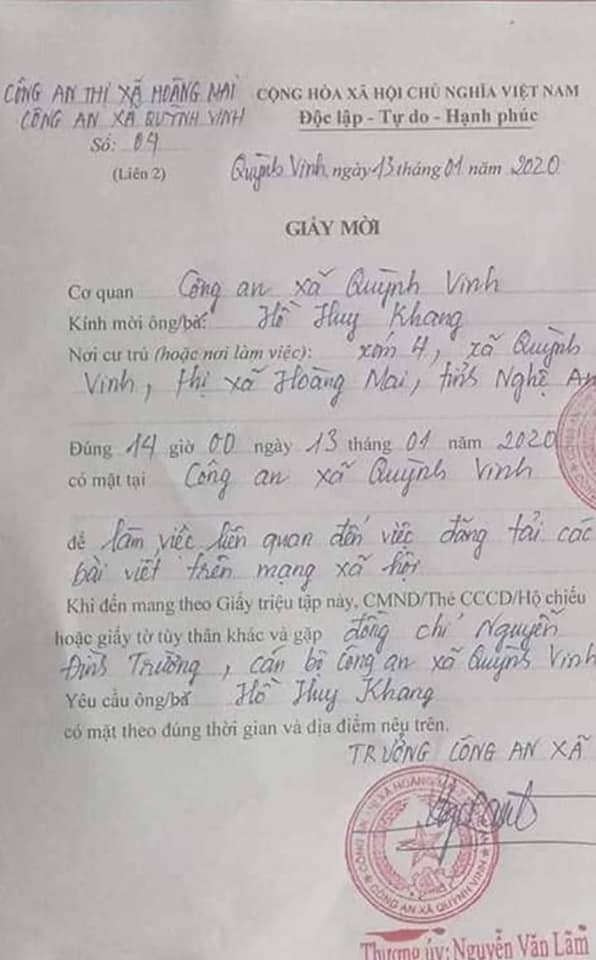 CÔNG AN THỊ XÃ HOÀNG MAI
CÔNG AN XÃ QUỲNH VINH
Số: 04
(Liên 2)
CỘNG HÒA XÃ HỘI CHỦ NGHĨA VIỆT NAM
Độc lập - Tự do - Hạnh phúc
Quỳnh Vinh, ngày 13 tháng 01 năm 2020
GIẤY MỜI
Cơ quan Công an xã Quỳnh Vinh
Kính mời ông/bà: Hồ Huy Khang
Nơi cư trú (hoặc nơi làm việc): xóm 4, xã Quỳnh
Vinh, thị xã Hoàng Mai, tỉnh Nghệ An
Đúng 14 giờ 00 ngày 13 tháng 01 năm 2020
có mặt tại Công an xã Quỳnh Vinh
để làm việc liên quan đến việc đăng tải các
bài viết trên mạng xã hội
Khi đến mang theo Giấy triệu tập này, CMND/Thẻ CCCD/Hộ chiếu
hoặc giấy tờ tùy thân khác và gặp đồng chí Nguyễn
Đình Trường, cán bộ Công an xã Quỳnh Vinh
Yêu cầu ông/bà Hồ Huy Khang
có mặt theo đúng thời gian và địa điểm nêu trên.
TRƯỞNG CÔNG AN XÃ
CÔNG AN XÃ QUỲNH VINH
Thượng úy: Nguyễn Văn Lâm